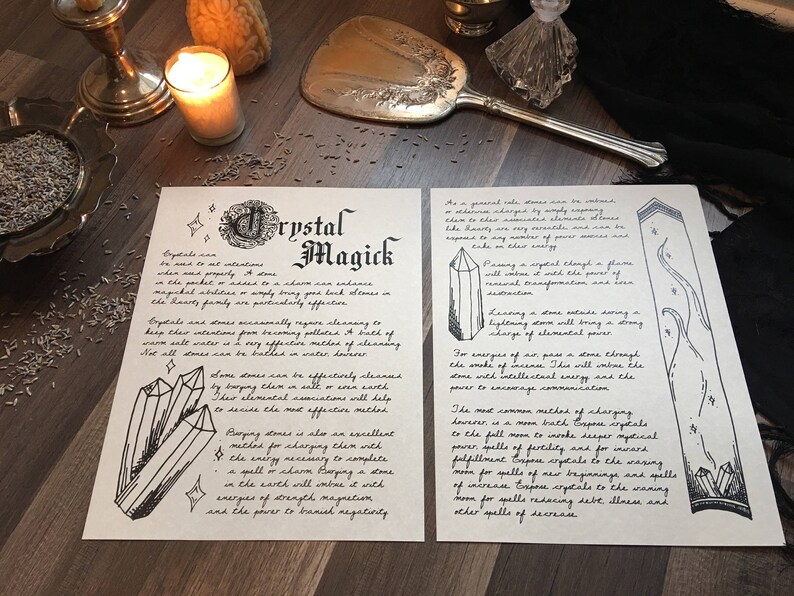 Crystal
Magick
Crystals can
be used to set intentions
when used properly. A stone
in the pocket or added to a charm can enhance
magickal abilities or simply bring good luck. Stones in
the Quartz family are particularly effective.
Crystals and stones occasionally require cleansing to
keep their intentions from becoming polluted. A bath of
warm salt water is a very effective method of cleansing.
Not all stones can be bathed in water, however.
Some stones can be effectively cleansed
by burying them in salt, or even earth.
Their elemental associations will help
to decide the most effective method.
Burying stones is also an excellent
method for charging them with
the energy necessary to complete
a spell or charm. Burying a stone
in the earth will imbue it with
energies of strength, magnetism,
and the power to banish negativity.
As a general rule, stones can be imbued
or otherwise charged by simply exposing
them to their associated elements. Stones
like Quartz are very versatile, and can be
exposed to any number of power sources and
take on their energy.
Passing a crystal though a flame
will imbue it with the power of
renewal, transformation and even
destruction.
Leaving a stone outside during a
lightning storm will bring a strong
charge of elemental power.
For energies of air, pass a stone through
the smoke of incense. This will imbue the
stone with intellectual energy, and the
power to encourage communication.
The most common method of charging,
however, is a moon bath. Expose crystals
to the full moon to invoke deeper mystical
power, spells of fertility, and for inward
fulfillment. Expose crystals to the waxing
moon for spells of new beginnings, and spells
of increase. Expose crystals to the waning
moon for spells reducing debt, illness, and
other spells of decrease.